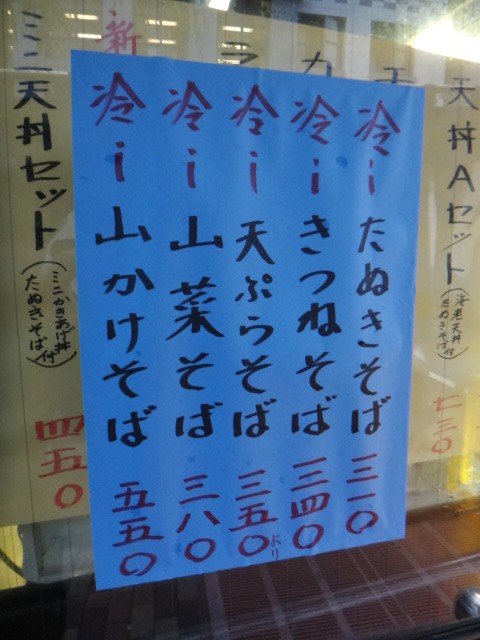 天丼Aセット(海老天丼たぬきそば付)七三〇
冷iたぬきそば三一〇
冷iきつねそば三四〇
冷i天ぷらそば三五〇より
冷i山菜そば三八〇
冷i山かけそば五五〇
新
ミニ天丼セット(ミニかきあげ丼たぬきそば付)四五〇